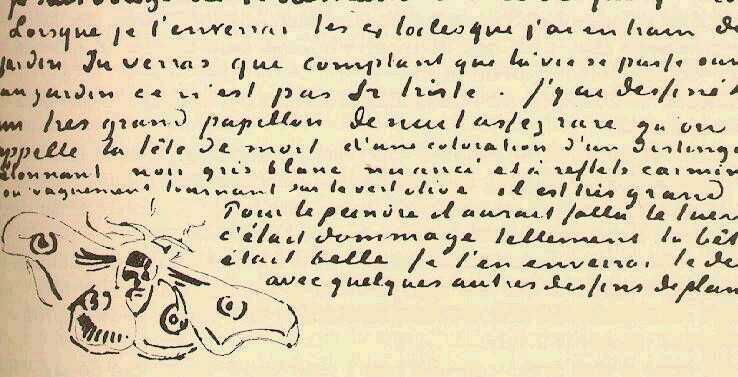 Lorsque je t'enverrai les 4 toiles que j'ai en train de
jardin tu verras que comptant que la vie se passe sur
au jardin ce n'est pas si triste. J'y ai dessiné
un très grand papillon de nuit assez rare qu'on
appelle la tête de mort d'une coloration d'un disting
étonnant noir gris blanc nuancé et à reflets carmin
ou vaguement tournant sur le vert olive il est très grand
Pour le peindre il aurait fallu le tuer
c'était dommage tellement la bêt
était belle Je t'en enverrai le de
avec quelques autres dessins de plan